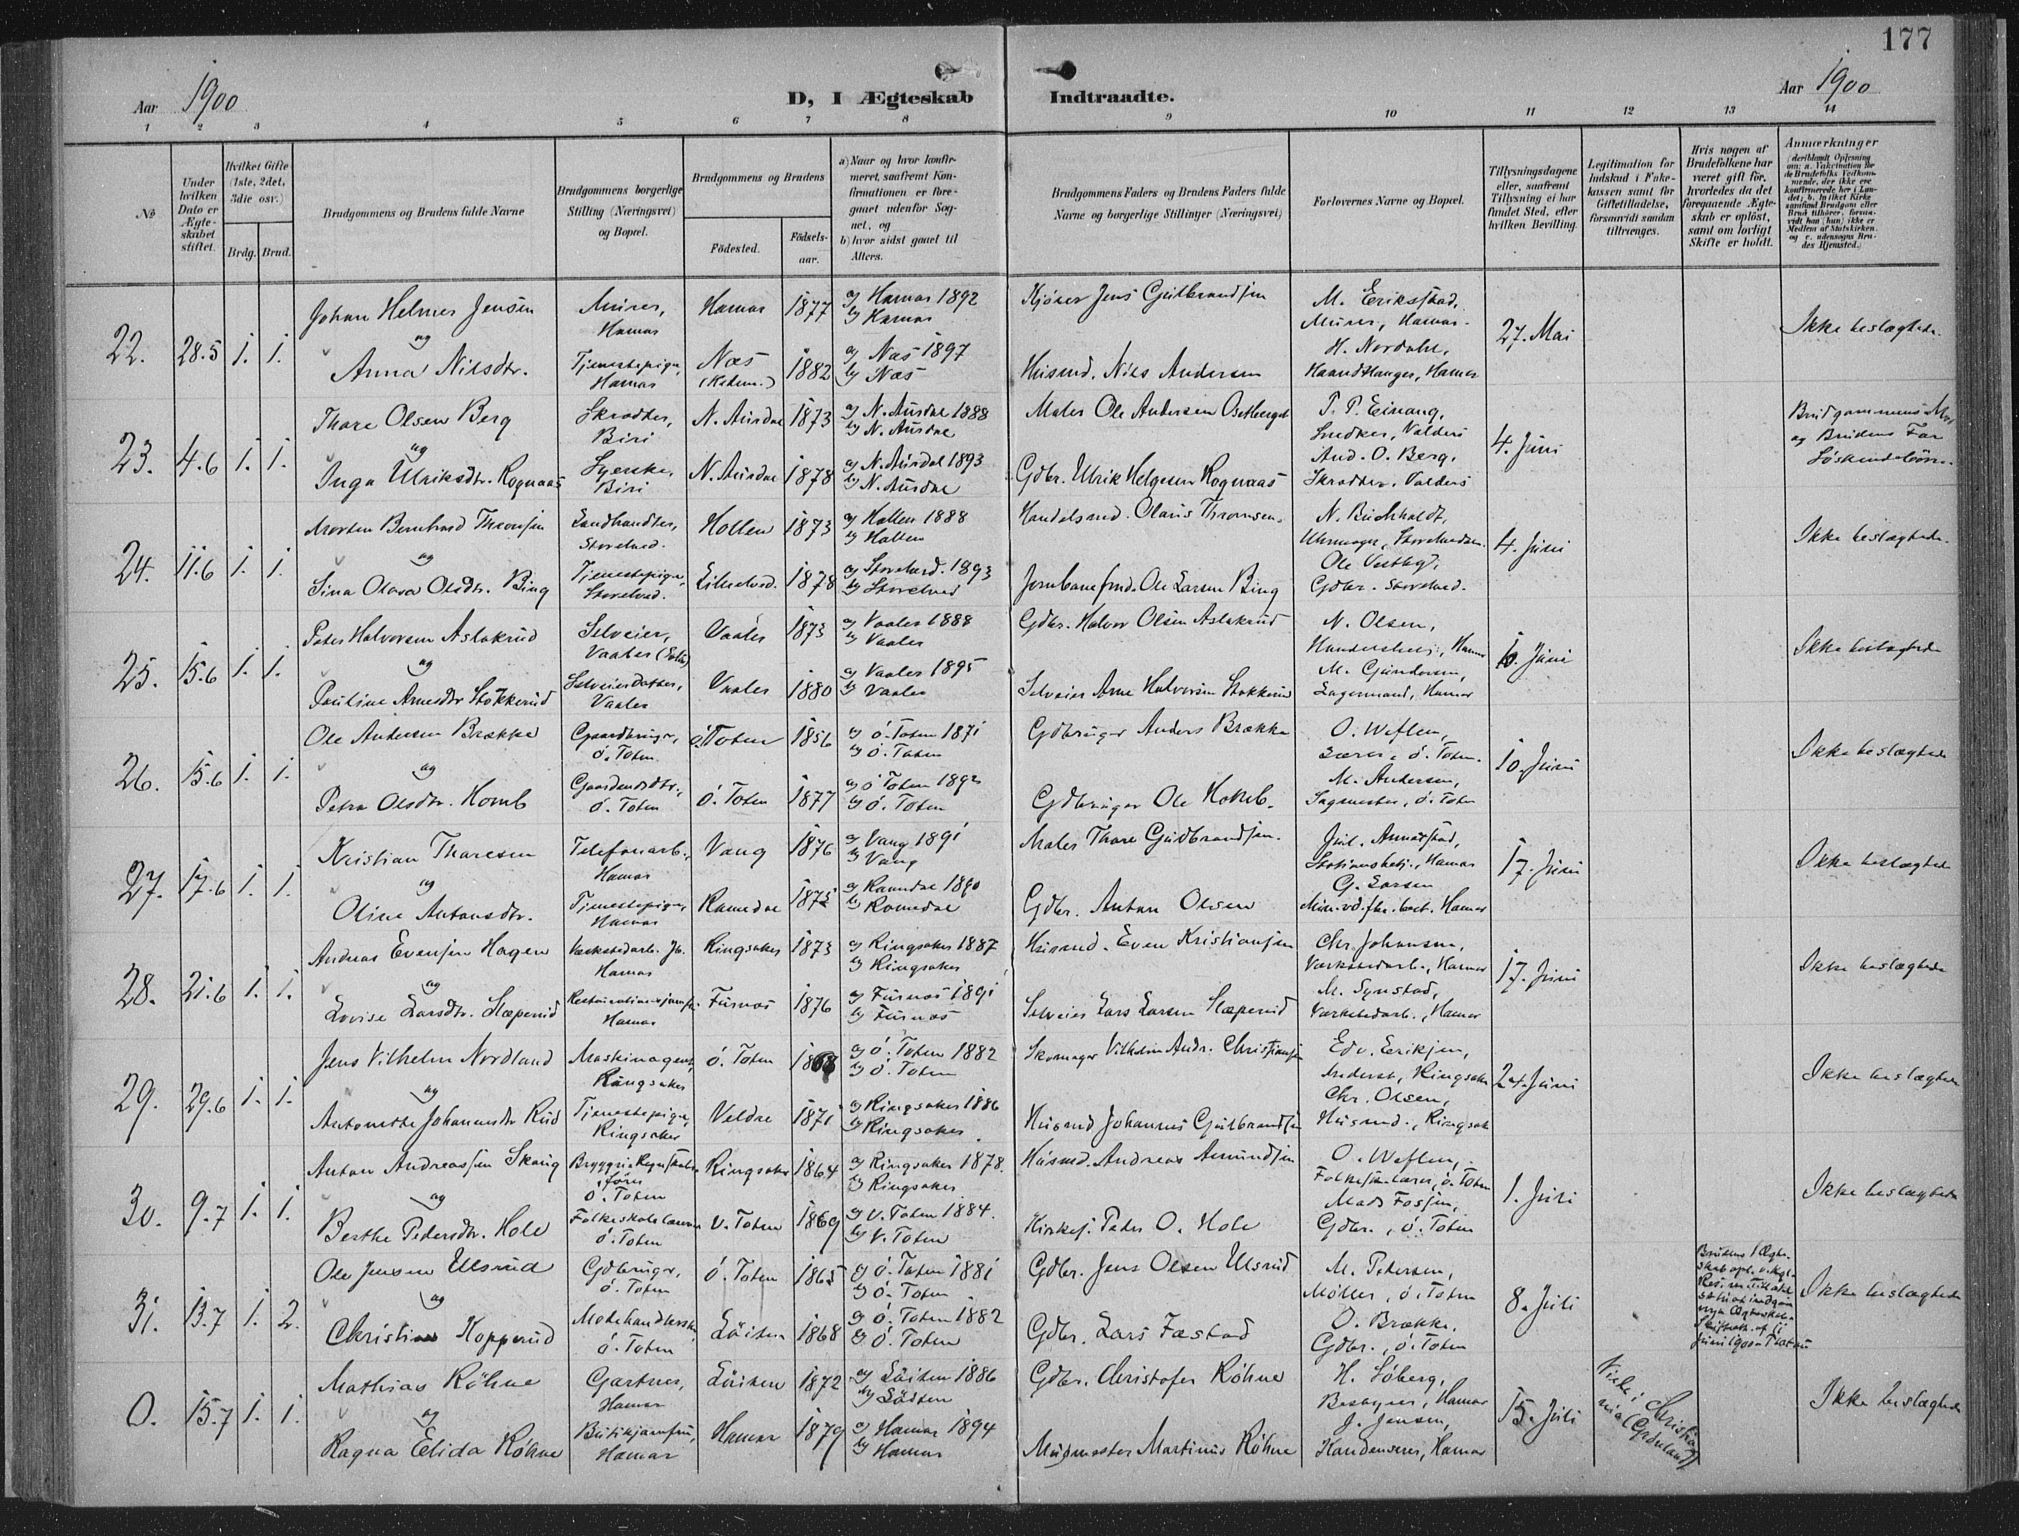 177
Aar 1900
D, I Ægteskab Indtraadte.
Aar 1900
1 2 3 4 5 6 7 8 9 10 11 12 13 14
№
Under hvilken Dato er Ægteskabet stiftet.
Hvilket Gifte (1ste, 2det, 3die osv.)
Brdg. Brud.
Brudgommens og Brudens fulde Navne
Brudgommens borgerlige Stilling (Næringsvei) og Bopæl.
Brudgommens og Brudens
Fødested.
Fødselsaar.
a) Naar og hvor konfirmeret, saafremt Konfirmationen er foregaaet udenfor Sognet, og
b) hvor sidst gaaet til Alters.
Brudgommens Faders og Brudens Faders fulde Navne og borgerlige Stillinger (Næringsvei)
Forlovernes Navne og Bopæl.
Tillysningsdagene eller, saafremt Tillysning ei har fundet Sted, efter hvilken Bevilling.
Legitimation for Indskud i Enkekassen samt for Giftetilladelse, forsaavidt saadan tiltrænges.
Hvis nogen af Brudefolkene har været gift før, hvorledes da det foregaaende Ægteskab er opløst, samt om lovligt Skifte er holdt.
Anmærkninger
22. 28.5 1. 1.
Johan Helmer Jensen
Murer, Hamar
Hamar 1877
a) Hamar 1892
b) Hamar
Kjører Jens Gulbrandsen
M. Eriksstad,
Murer, Hamar.
27. Mai
Ikke beslægtede.
og
Anna Nilsdtr.
Tjenestepige, Hamar
Næs 1882
a) Næs 1897
b) Næs
Husmd. Nils Andersen
H. Nordahl,
Haandlanger, Hamar
23. 4.6 1. 1.
Thore Olsen Berg
Skrædder, Biri
N. Aurdal 1873
a) N. Aurdal 1888
b) N. Aurdal
Maler Ole Andersen
Snedker, Valders
4. Juni
Brudgommens Mor
og Brudens Far
Søskendebørn.
og
Inga Ulriksdtr. Rognaas
Syerske, Biri
N. Aurdal 1878
a) N. Aurdal 1893
b) N. Aurdal
Gdbr. Ulrik Helgesen Rognaas
And. O. Berg,
Skrædder, Valders
24. 11.6 1. 1.
Morten Bernhard Thronsen
Landhandler, Storelved.
Holten 1873
a) Holten 1888
b) Holten
Handelsmd. Olaus Thronsen.
N. Buchholdt,
Uhrmager, Storelvedalen.
4. Juni
Ikke beslægtede.
og
Sina Olava Olsdtr. Bing
Tjenestepige, Storelved.
1878
a) Storelved. 1893
b) Storelved
Jernbanefmd. Ole Larsen Bing
Ole Vestbyd.
Gdbr. Storelved.
25. 15.6 1. 1.
Peter Halvorsen Aslakrud
Selveier, Vaaler
Vaaler 1873
a) Vaaler 1888
b) Vaaler
Gdbr. Halvor Olsen Aslakrud
N. Olsen,
Hamar
10. Juni
Ikke beslægtede
og
Pauline Arnesdtr Stokkerud
Selveierdatter, Vaaler
Vaaler 1880
a) Vaaler 1895
b) Vaaler
Selveier Arne Halvorsen Stokkerud
M. Gundersen,
Lagermand, Hamar
26. 15.6 1. 1.
Ole Andersen Brække
Gaardbruger, Ö. Toten
Ö. Toten 1856
a) Ö. Toten 1871
b) Ö. Toten
Gdbruger Anders Brække
O. Weflen,
Lærer, Ö. Toten.
10. Juni
Ikke beslægtede
og
Petra Olsdtr. Homb
Ö. Toten
Ö. Toten 1877
a) Ö Toten 1892
b) Ö. Toten
Gdbruger Ole Homb.
M. Andersen,
Sagmester, Ö. Toten
27. 17.6 1. 1.
Kristian Thoresen
Telefonarb., Hamar
Vang 1876
a) Vang 1891
b) Vang
Maler Thore Gudbrandsen.
Jul. Annerstad,
Stationsbetj., Hamar
17. Juni
Ikke beslægtede
og
Oline Antonsdtr.
Tjenestepige, Hamar
Romedal 1875
a) Romedal 1890
b) Romedal
Gdbr. Anton Olsen
G. Larsen
Hamar
28. 21.6 1. 1.
Andreas Evensen Hagen
Værkstedarb. Jb. Hamar
Ringsaker 1873
a) Ringsaker 1887
b) Ringsaker
Husmd. Even Kristiansen
Chr. Johansen,
Værkstedarb., Hamar
17. Juni
Ikke beslægtede
og
Lovise Larsdtr. Slæperud
Restaurationsjomfru, Hamar
Furnæs 1876
a) Furnæs 1891
b) Furnæs
Selveier Lars Larsen Slæperud
M. Synstad,
Værkstedarb., Hamar
29. 29.6 1. 1.
Jens Vilhelm Nordland
Maskinagent, Ringsaker
Ö. Toten 1868
a) Ö. Toten 1882
b) Ö. Toten
Skomager Vilhelm Andr. Christiansen
Edv. Eriksen,
Ringsaker
24. Juni
Ikke beslægtede
og
Antonette Johannesdtr Rud
Tjenestepige, Ringsaker
Veldre 1871
a) Ringsaker 1886
b) Ringsaker.
Husmd Johannes Gulbrandsen
Chr. Olsen,
Husmd., Ringsak
30. 9.7 1. 1.
Anton Andreassen Skaug
Bryggeri Regnskabsfører, Ö. Toten
Ringsaker 1864
a) Ringsaker 1878.
b) Ringsaker
Husmd. Andreas Amundsen
O. Weflen,
Ö. Toten
1. Juli
Ikke beslægtede
og
Berthe Pedersdtr. Hole
Folkeskolelærer, Ö. Toten
V. Toten 1869
a) V. Toten 1884.
b) V. Toten
Kirkesj. Peder O. Hole
Mads Fossen,
Gdbr., Ö. Toten
31. 13.7 1. 2.
Ole Jensen Ulsrud
Gdbruger, Ö. Toten
Ö. Toten 1865
a) Ö. Toten 1881
b) Ö. Toten
Gdbr. Jens Olsen Ulsrud
M. Petersen,
Möller, Ö. Toten
8. Juli
Ikke beslægtede
og
Christine Kopperud
Modehandlerske, Ö. Toten
Löiten 1868
a) Ö. Toten 1882
b) Ö. Toten
Gdbr. Lars Fæstad
O. Brække,
Gdbr., Ö. Toten
0. 15.7 1. 1.
Mathias Röhne
Gartner, Hamar
Löiten 1872
a) Löiten 1886
b) Löiten
Gdbr. Christofer Röhne
H. Söberg,
Hamar
15. Juli
Viede i Christiania (Grönland)
Ikke beslægtede
og
Ragna Elida Röhne
Butikjomfru, Hamar
Hamar 1879
a) Hamar 1894
b) Hamar
Murmester Martinus Röhne
J. Jensen,
Hamar